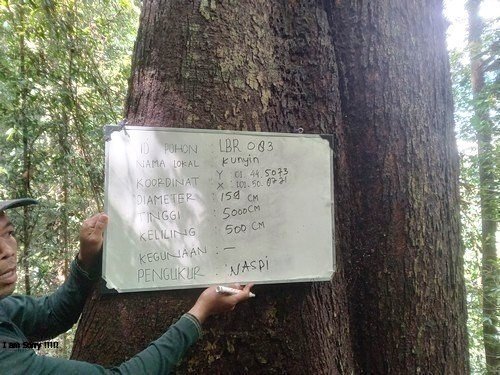 ID POHON : LBR 003
NAMA LOKAL : kunyin
KOORDINAT : Y 01.44.5073
X : 101.50.0771
DIAMETER : 159 CM
TINGGI : 5000 CM
KELILING : 500 CM
KEGUNAAN : –
PENGUKUR : NASPI
I am Sorry !!!!?